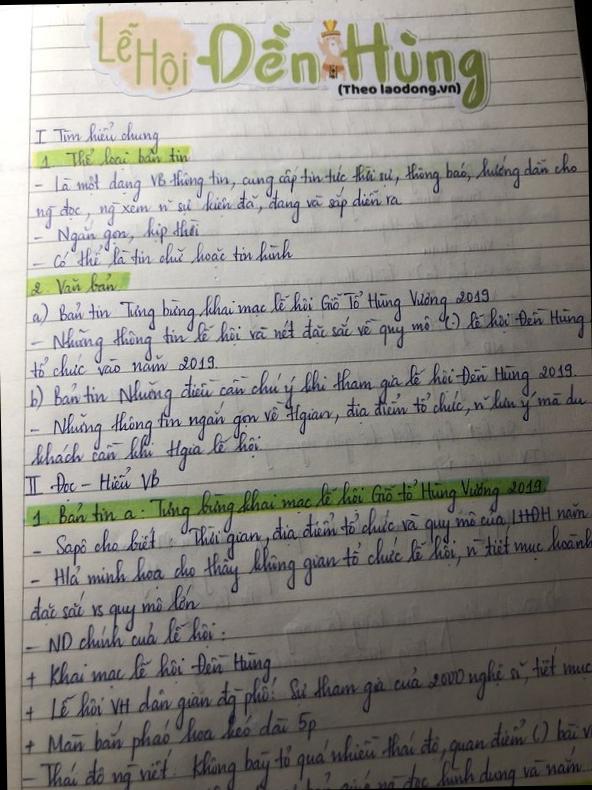 Lễ Hội Đền Hùng
(Theo laodong.vn)
I Tìm hiểu chung
1. Thể loại bản tin
- Là một dạng VB thông tin, cung cấp tin tức thời sự, thông báo, hướng dẫn cho
ng đọc, ng xem n~ sự kiện đã, đang và sắp diễn ra
- Ngắn gọn, kịp thời
- Có thể là tin chữ hoặc tin hình
2. Văn bản
a) Bản tin Tưng bừng khai mạc lễ hội Giỗ Tổ Hùng Vương 2019
- Những thông tin lễ hội và nét đặc sắc về quy mô (.) lễ hội Đền Hùng
tổ chức vào năm 2019.
b) Bản tin Những điều cần chú ý khi tham gia lễ hội Đền Hùng 2019.
- Những thông tin ngắn gọn về tgian, địa điểm tổ chức, n~ lưu ý mà du
khách cần khi tgia lễ hội
II Đọc - Hiểu VB
1. Bản tin a: Tưng bừng khai mạc lễ hội Giỗ tổ Hùng Vương 2019.
- Sapô cho biết: Thời gian, địa điểm tổ chức và quy mô của LHĐH năm
- Hả minh họa cho thấy không gian tổ chức lễ hội, n~ tiết mục hoành
đặc sắc vs quy mô lớn
- ND chính của lễ hội:
+ Khai mạc lễ hội Đền Hùng
+ Lễ hội VH dân gian đg phố: Sự tham gia của 2000 nghệ sĩ, tiết mục
+ Màn bắn pháo hoa kéo dài 5p
- Thái độ ng viết: Không bày tỏ quá nhiều thái độ, quan điểm (.) bài v
ng đọc hình dung và nắm